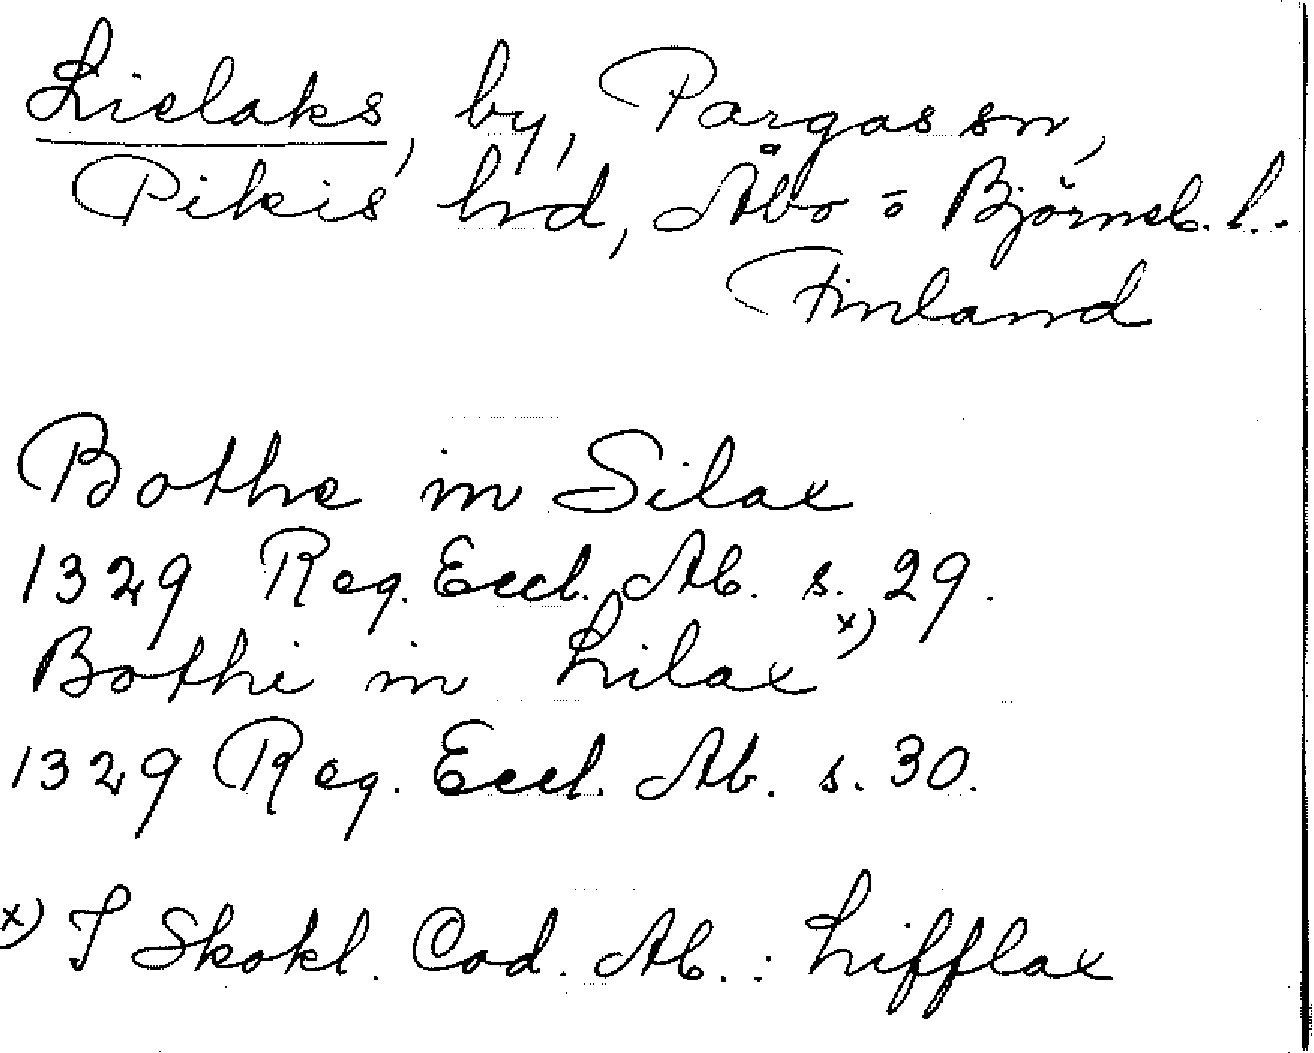 Lielaks, by, Pargas sn,
Pikis hrd, Åbo = Björneb. l.
Finland
Bothe in Silax
1329 Reg. Eccl. Ab. s. 29.
Bothi in Lilax x)
1329 Reg. Eccl. Ab. s. 30.
x) I Skokl. Cod. Ab.: Lifflax